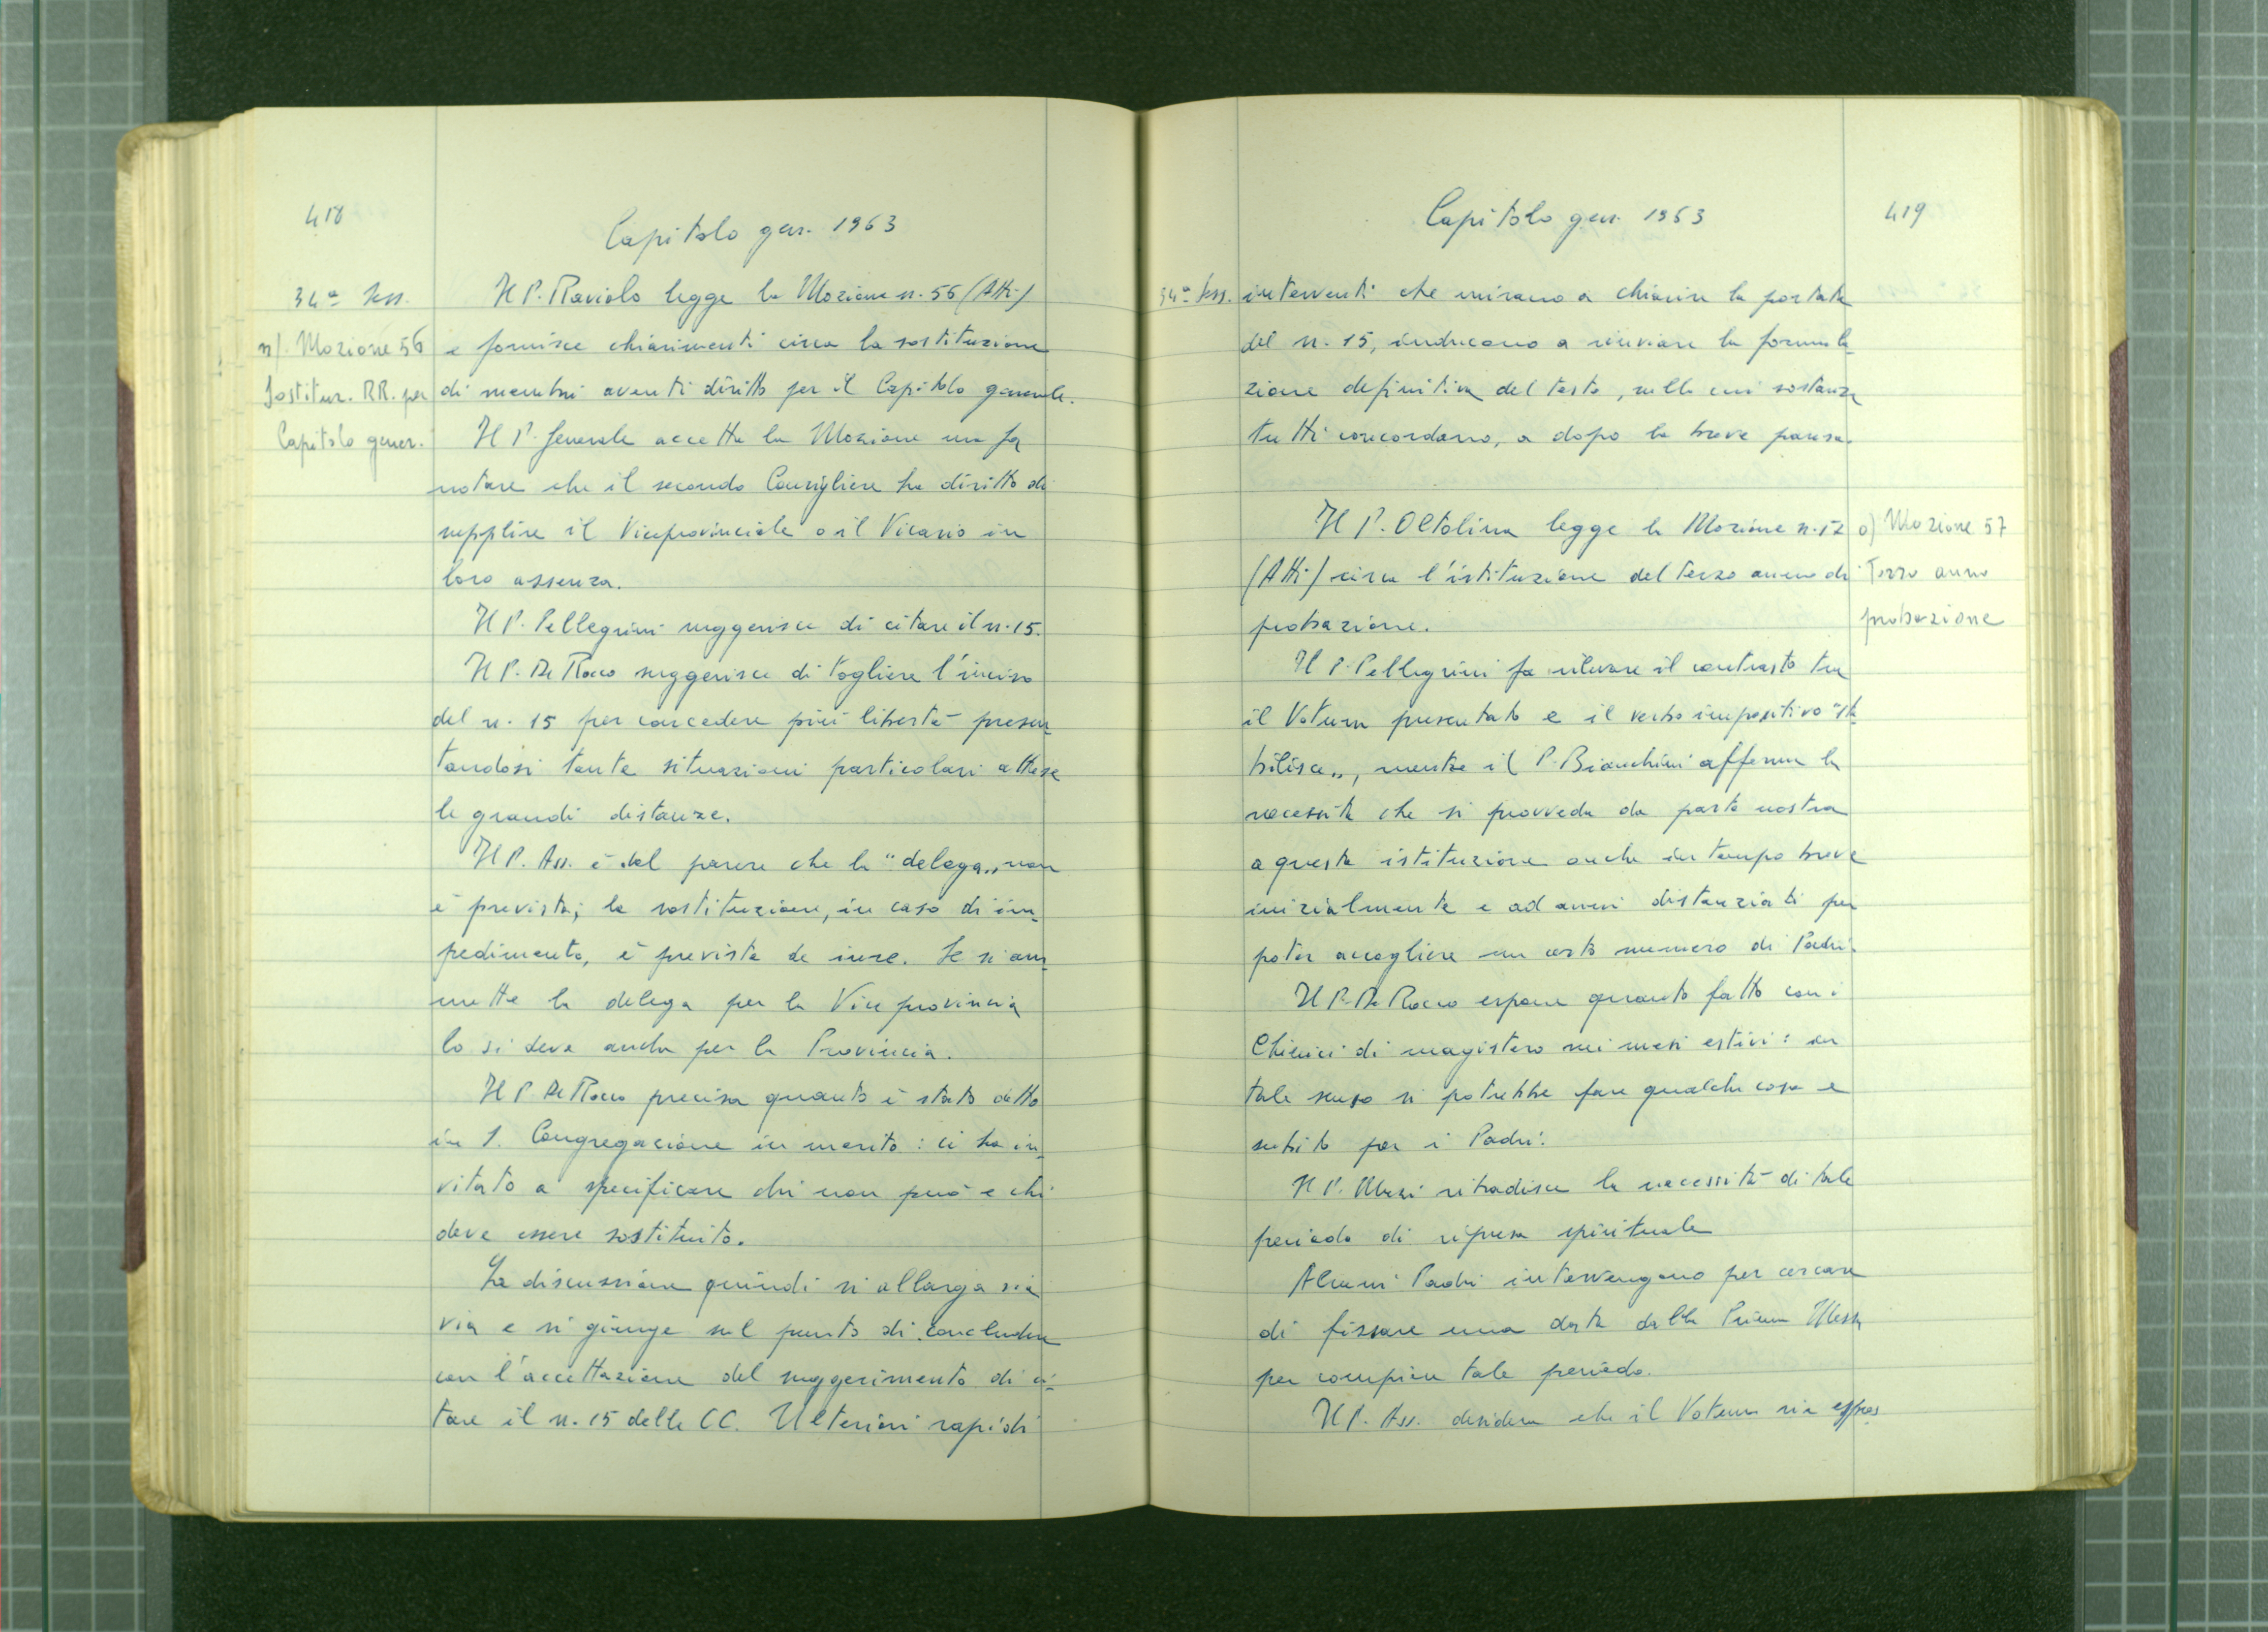 418
Capitolo gen. 1963
34ª Sess.
n). Mozione 56
Sostituz. RR. per
Capitolo gener.
Il P. Raviolo legge la Mozione n. 56 (Atti)
e fornisce chiarimenti circa la sostituzione
di membri aventi diritto per il Capitolo generale.
Il P. Generale accetta la Mozione ma fa
notare che il secondo Consigliere ha diritto di
supplire il Viceprovinciale o il Vicario in
loro assenza.
Il P. Pellegrini suggerisce di citare il n. 15.
Il P. De Rocco suggerisce di togliere l'inciso
del n. 15 per concedere più libertà presen_
tandosi tante situazioni particolari attese
le grandi distanze.
Il P. Ass. è del parere che la "delega„ non
è prevista; la sostituzione, in caso di im_
pedimento, è prevista de iure. Se si am_
mette la delega per la Viceprovincia
lo si deve anche per la Provincia.
Il P. De Rocco precisa quanto è stato detto
in S. Congregazione in merito: ci ha in_
vitato a specificare chi non può e chi
deve essere sostituito.
La discussione quindi si allarga via
via e si giunge sul punto di concludere
con l'accettazione del suggerimento di ci_
tare il n. 15 delle CC. Ulteriori rapidi
Capitolo gen. 1963
419
34ª Sess.
interventi che mirano a chiarire la portata
del n. 15, inducono a rinviare la formula_
zione definitiva del testo, sulla cui sostanza
tutti concordano, a dopo la breve pausa.
Il P. Oltolina legge la Mozione n. 57
(Atti) circa l'istituzione del terzo anno di
probazione.
o) Mozione 57
Terzo anno
probazione
Il P. Pellegrini fa rilevare il contrasto tra
il Votum presentato e il verbo impositivo "sta_
bilisca„, mentre il P. Bianchini afferma la
necessità che si provveda da parte nostra
a questa istituzione anche in tempo breve
inizialmente e ad anni distanziati per
poter accogliere un certo numero di Padri.
Il P. De Rocco espone quanto fatto con i
Chierici di magistero nei mesi estivi: in
tale senso si potrebbe fare qualche cosa e
subito per i Padri.
Il P. ribadisce la necessità di tale
periodo di ripresa spirituale
Alcuni Padri intervengono per cercare
di fissare una data dalla Prima Messa
per compiere tale periodo.
Il P. Ass. desidera che il Votum sia espres_